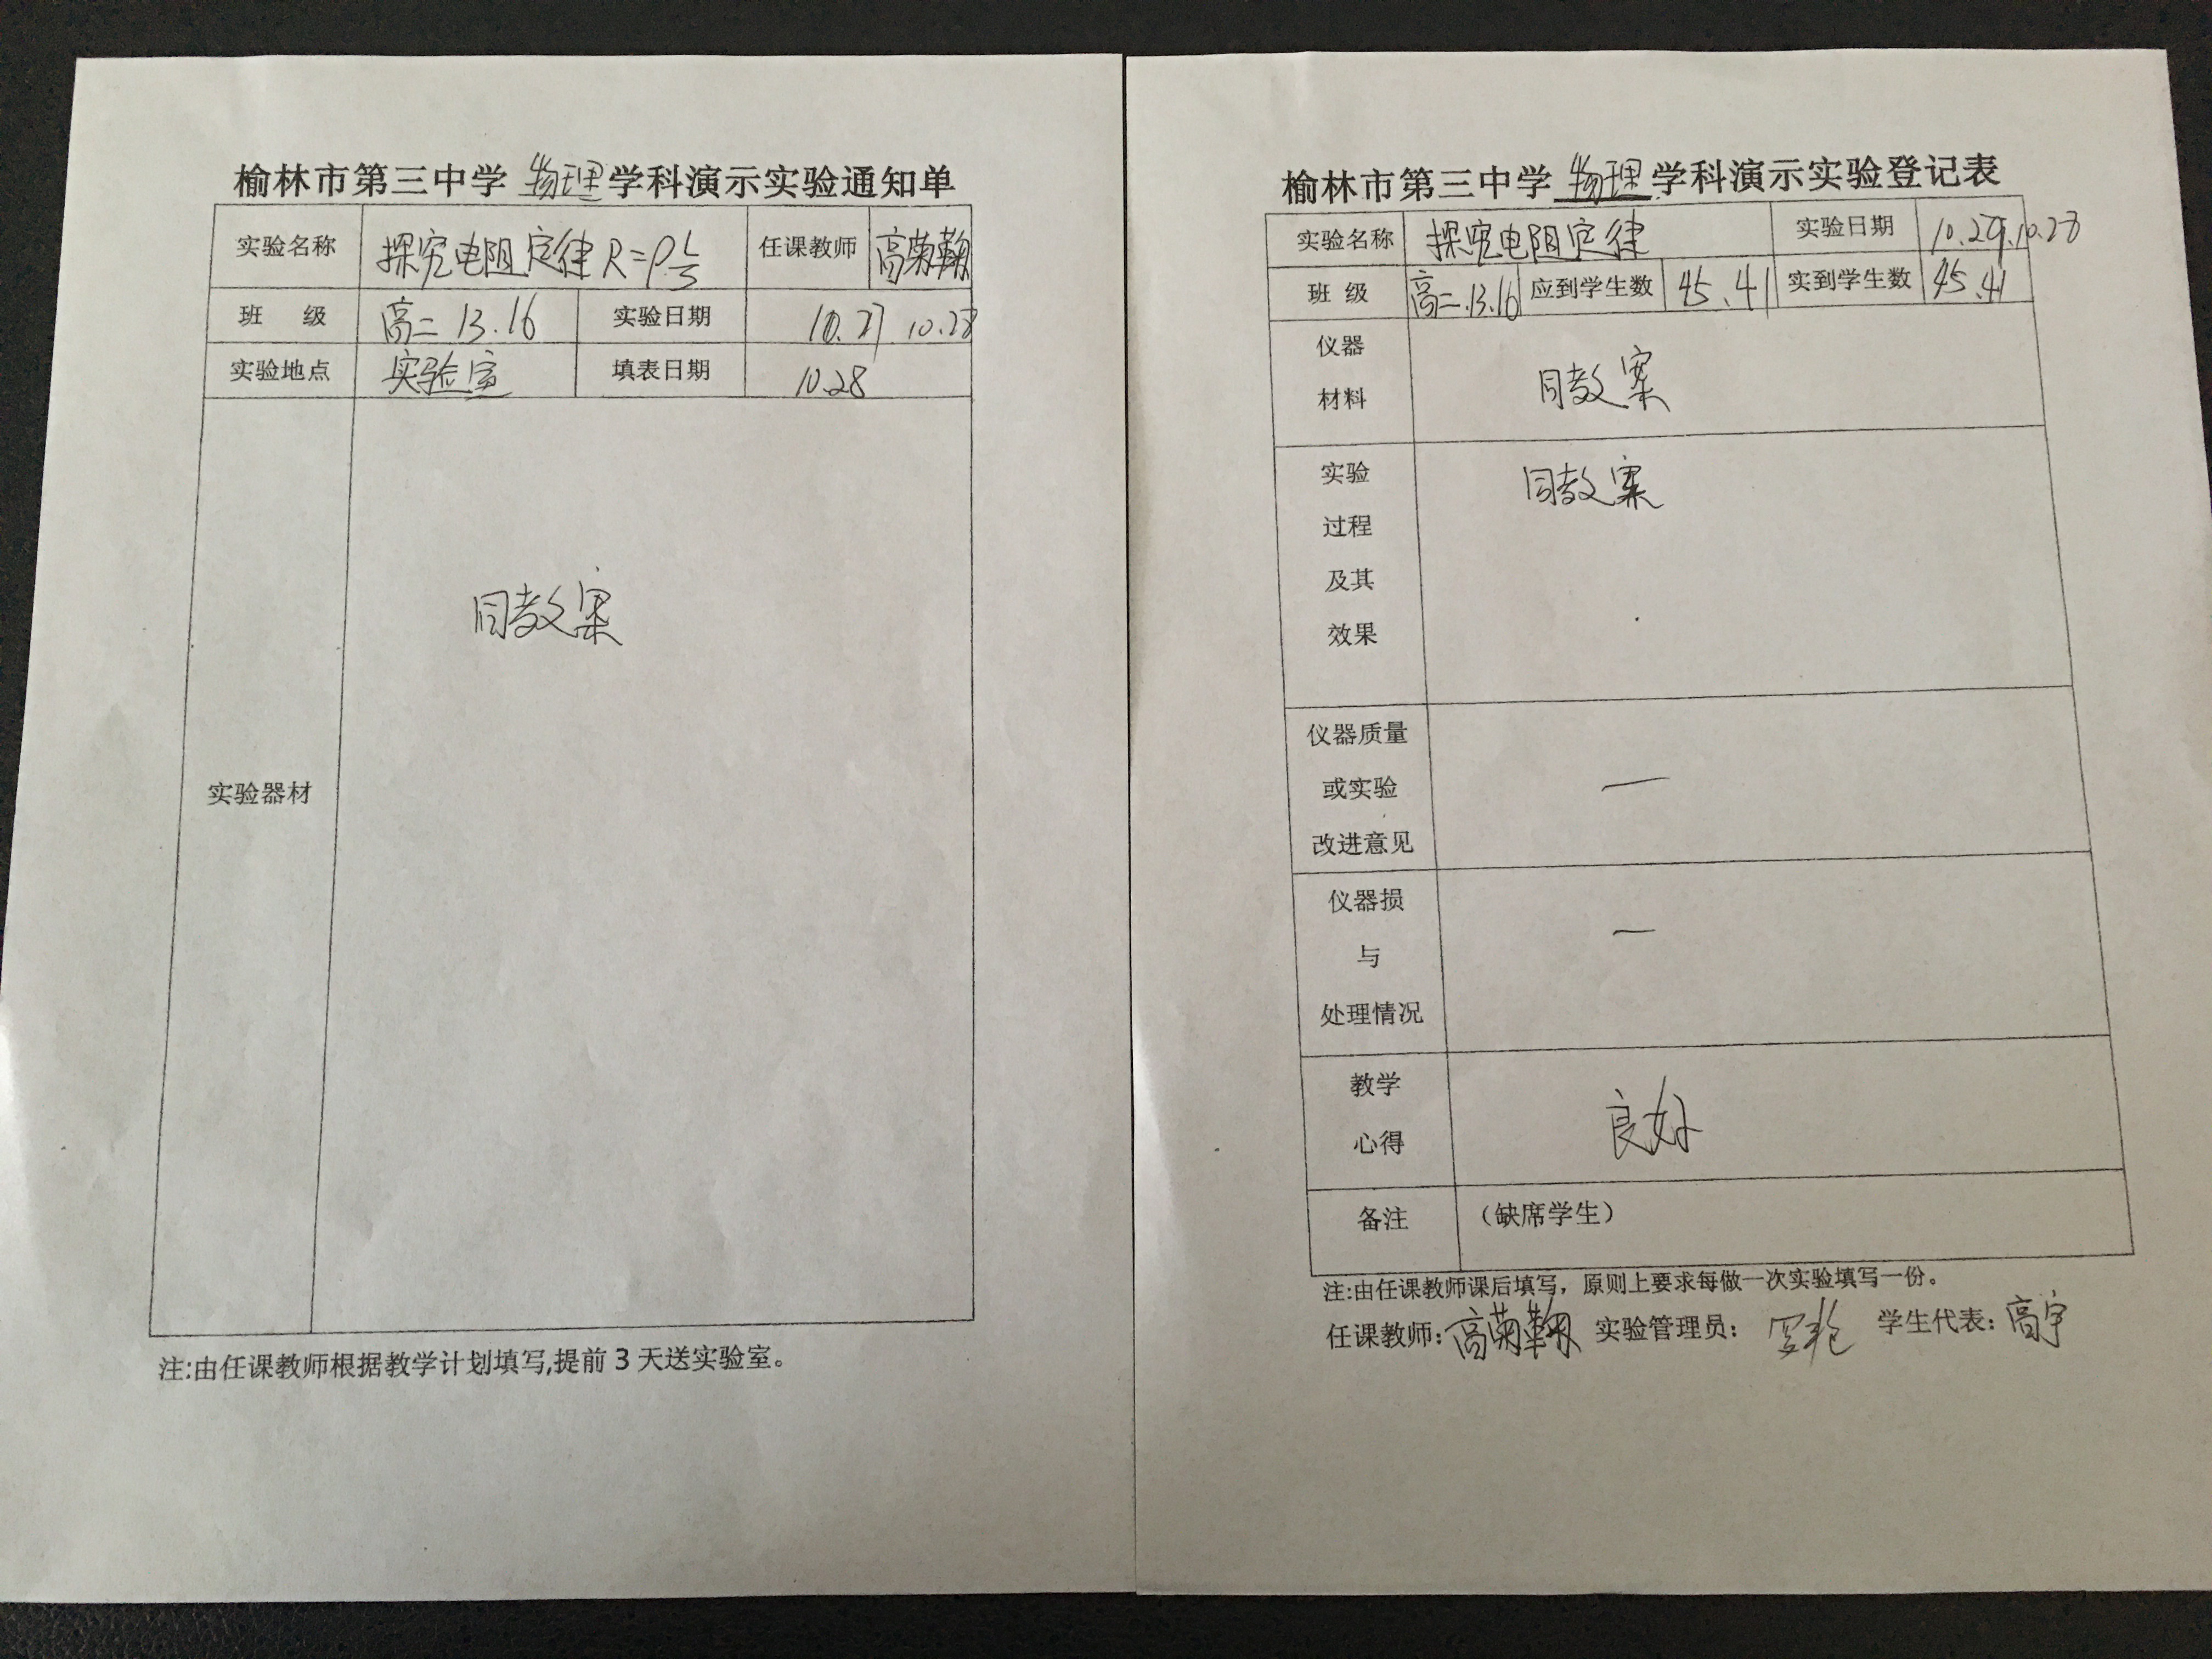 榆林市第三中学 物理 学科演示实验通知单
实验名称 探究电阻定律 R=ρL/S 任课教师 高菊鞠
班 级 高二 13.16 实验日期 10.27 10.28
实验地点 实验室 填表日期 10.28
实验器材 同教案
注:由任课教师根据教学计划填写,提前3天送实验室。
榆林市第三中学 物理 学科演示实验登记表
实验名称 探究电阻定律 实验日期 10.27.10.28
班 级 高二.13.16 应到学生数 45.41 实到学生数 45.41
仪器
材料
同教案
实验
过程
及其
效果
同教案
仪器质量
或实验
改进意见
—
仪器损
与
处理情况
—
教学
心得
良好
备注 （缺席学生）
注:由任课教师课后填写，原则上要求每做一次实验填写一份。
任课教师: 高菊鞠 实验管理员: 学生代表: 高宇